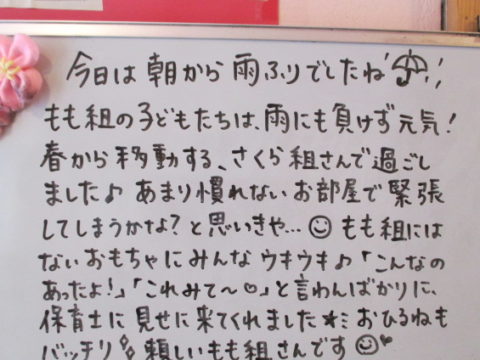 今日は朝から雨ふりでしたね☂!!
もも組の子どもたちは、雨にも負けず元気!
春から移動する、さくら組さんで過ごし
ました♪ あまり慣れないお部屋で緊張
してしまうかな?と思いきや…☺もも組には
ないおもちゃにみんなウキウキ♪「こんなの
あったよ!」「これみて〜♡」と言わんばかりに、
保育士に見せに来てくれました★ミおひるねも
バッチリ 頼しいもも組さんです☺♥